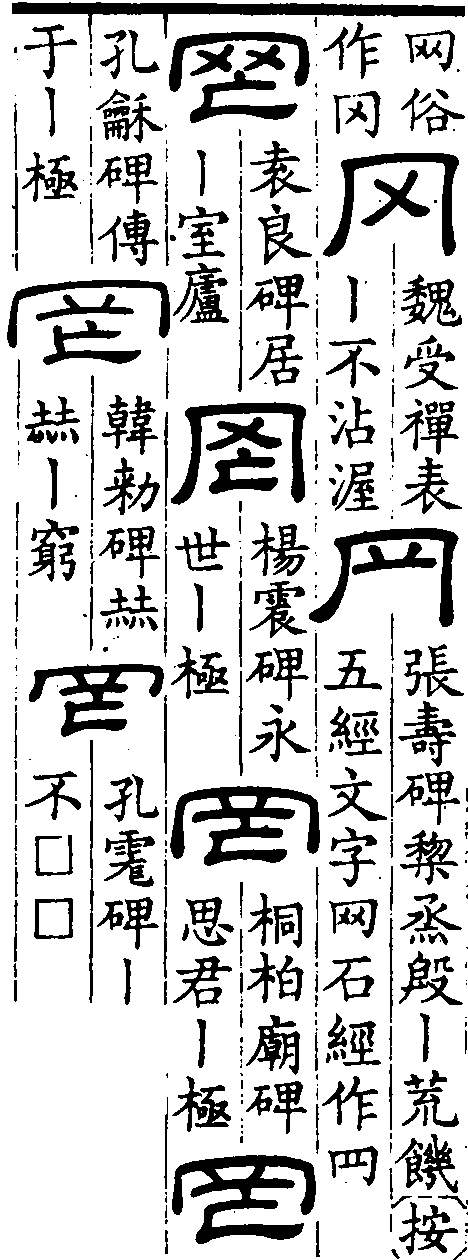 网俗
作冈
冈
魏受禪表
丨不沾渥
罓
張壽碑黎烝殷丨荒饑〔按
五經文字网石經作罒
罔
袁良碑居
丨室廬
罔
楊震碑永
世丨極
罔
桐柏廟碑
思君丨極
罔
孔龢碑傳
于丨極
罔
韓勑碑赫
赫丨窮
罔
孔碑丨
不□□